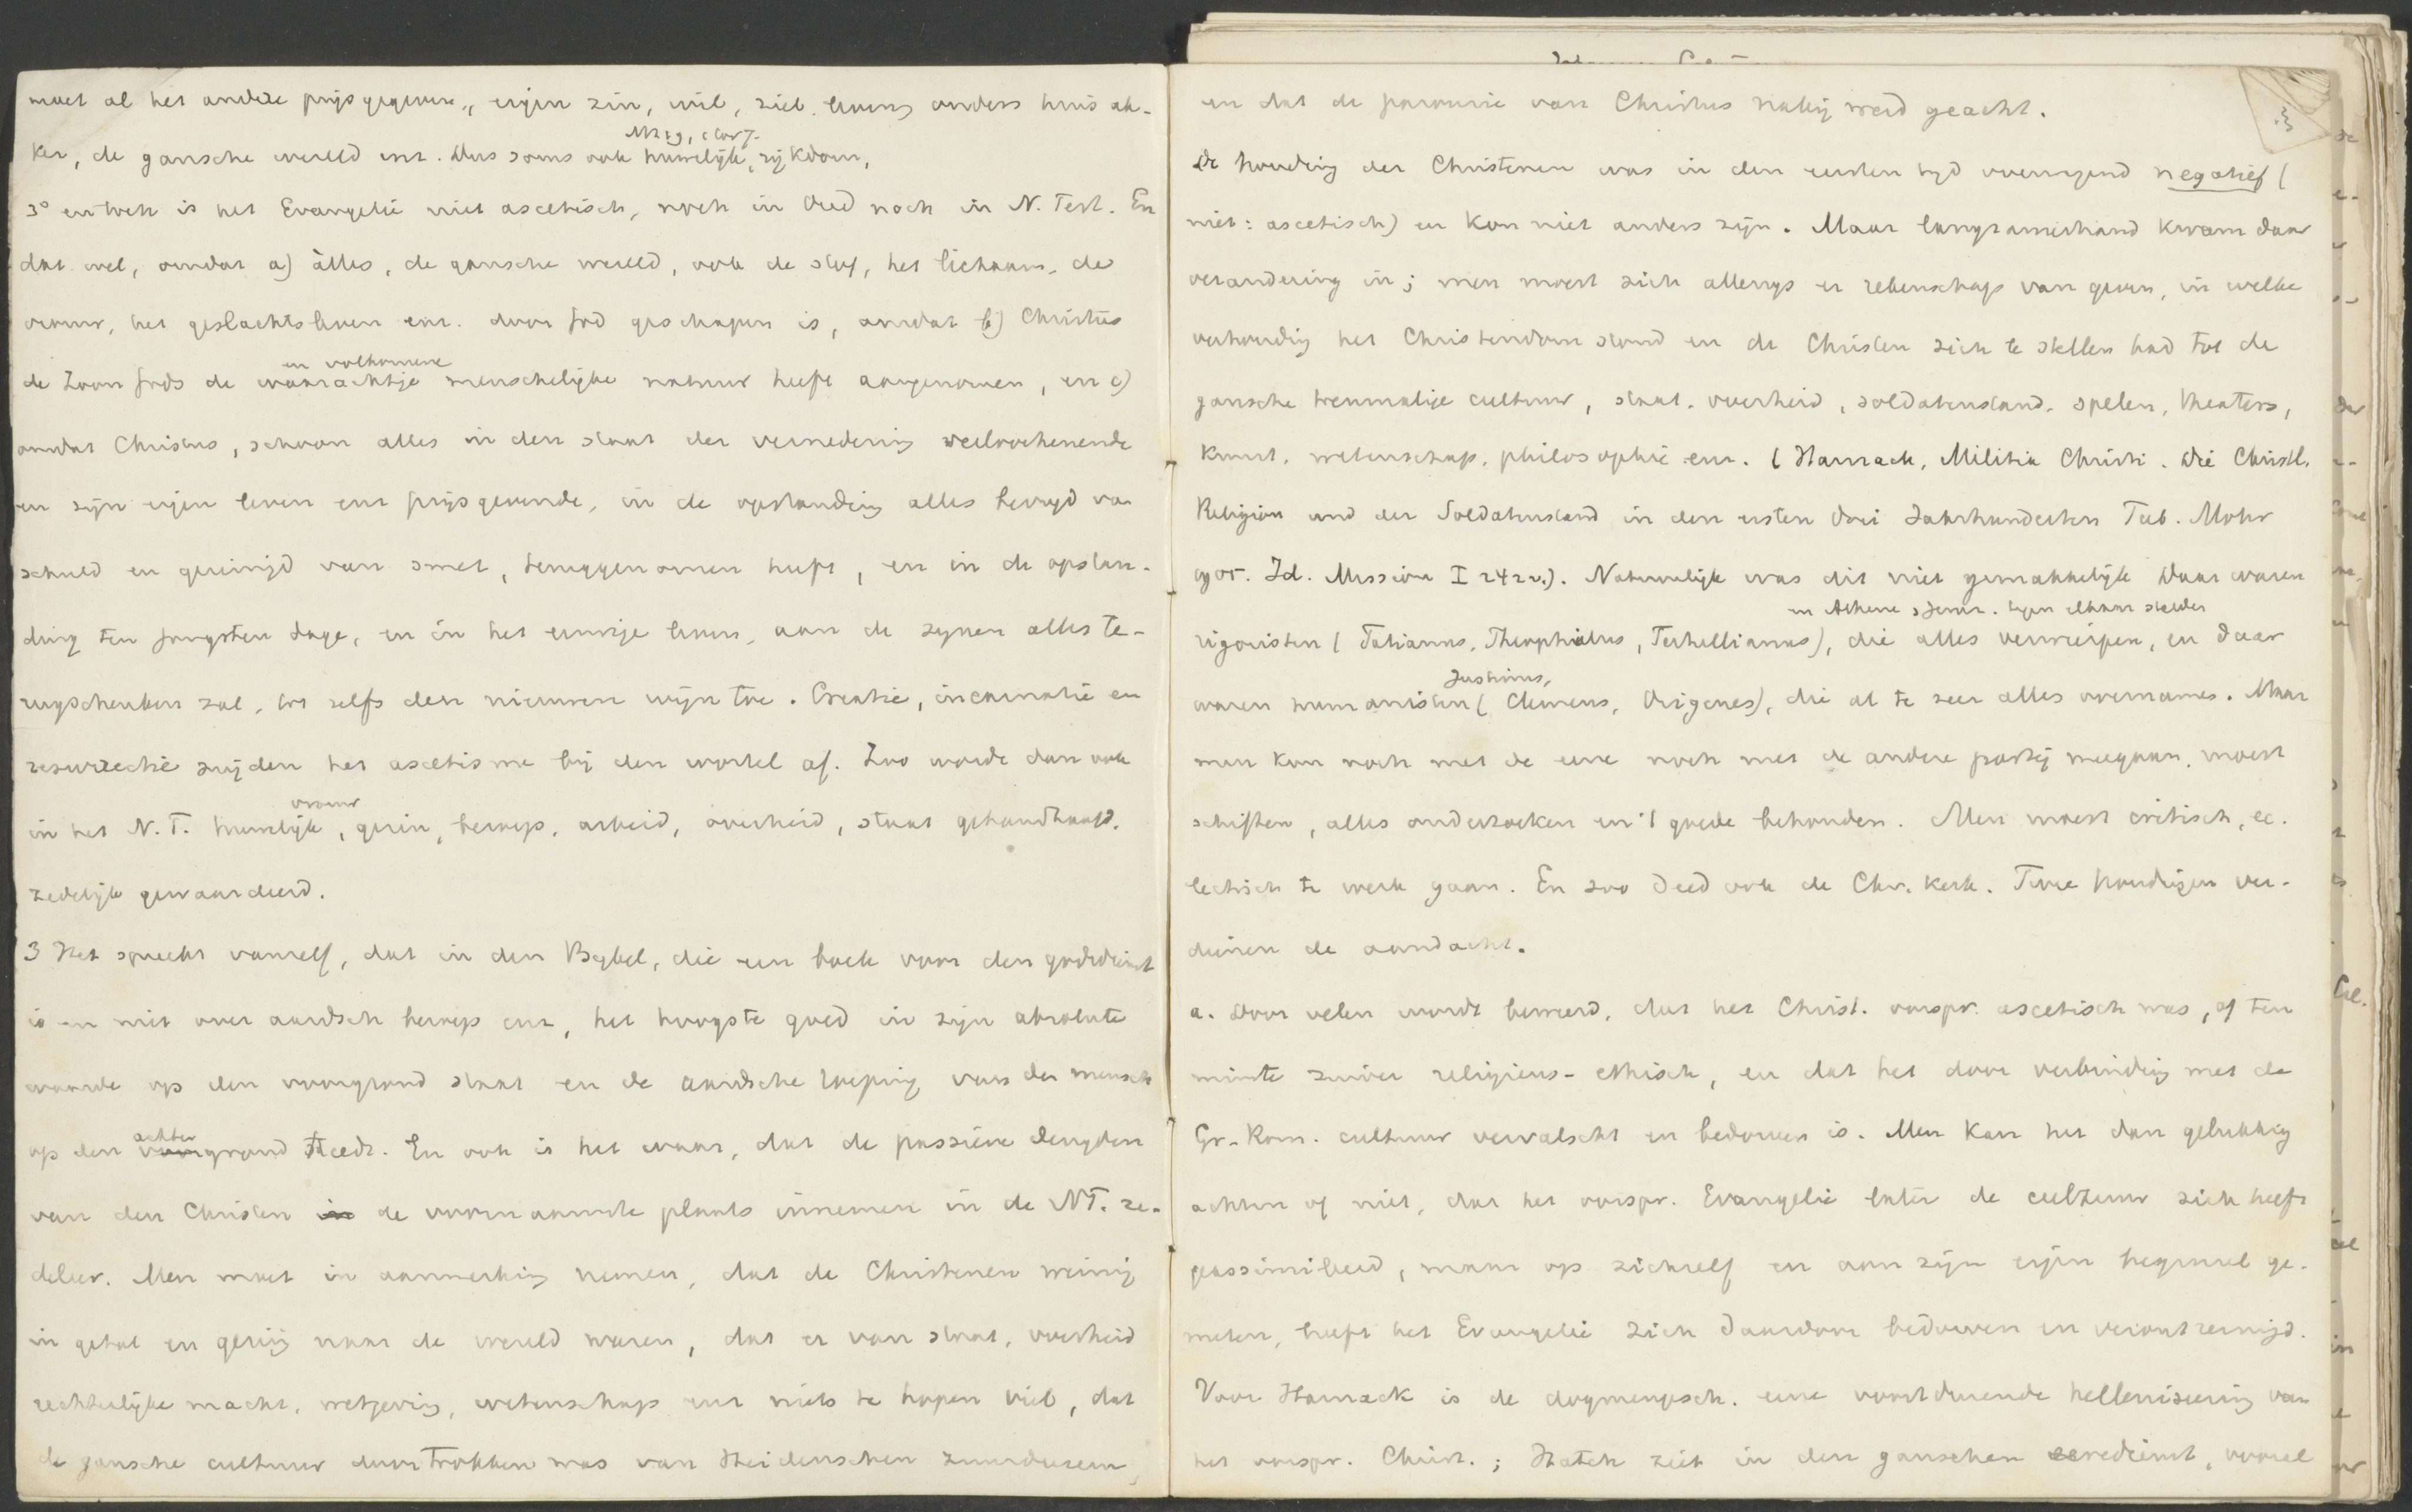 moet al het andere prijsgegeven, eigen zin, wil, ziel, leven, ouders huis ak-
Matth. 19,
ker, de gansche wereld enz. Dus soms ook huwelijk, rijkdom,
3° en toch is het Evangelie niet ascetisch, noch in Oud noch in N. Test. En
dat wel, omdat a) àlles, de gansche wereld, ook de stof, het lichaam, de
vrouw, het geslachtsleven enz. door God geschapen is, omdat b) Christus
en volkomene
de Zoon Gods de waarachtige menschelijke natuur heeft aangenomen, en c)
omdat Christus, schoon alles in den staat der vernedering verloochenende
en zijn eigen leven enz prijsgevende, in de opstanding alles bevrijd van
schuld en gereinigd van smet, teruggenomen heeft, en in de opstan-
ding ten jongsten dage, en in het eeuwige leven, aan de zijnen alles te-
rugschenken zal, tot zelfs den nieuwen wijn toe. Creatie, incarnatie en
resurrectie snijden het ascetisme bij den wortel af. Zoo worde dan ook
vrouw
in het N. T. huwelijk, gezin, beroep, arbeid, overheid, staat gehandhaafd,
zedelijk gewaardeerd.
3 Het spreekt vanzelf, dat in den Bijbel, die een boek voor den godsdienst
is en niet over aardsch beroep enz, het hoogste goed in zijn absolute
waarde op den voorgrond staat en de aardsche roeping van den mensch
achter
op den voorgrond treedt. En ook is het waar, dat de passieve deugden
van den Christen in de voornaamste plaats innemen in de NT. ze-
deleer. Men moet in aanmerking nemen, dat de Christenen weinig
in getal en gering naar de wereld waren, dat er van staat, overheid
rechterlijke macht, wetgeving, wetenschap enz niets te hopen viel, dat
de gansche cultuur doortrokken was van Heidenschen zuurdeesem,
en dat de parousie van Christus nabij werd geacht.
De houding der Christenen was in den eersten tijd overwegend negatief (
niet: ascetisch) en kon niet anders zijn. Maar langzamerhand kwam daar
verandering in; men moest zich allengs er rekenschap van geven, in welke
verhouding het Christendom stond en de Christen zich te stellen had tot de
gansche toenmalige cultuur, staat, overheid, soldatenstand, spelen, theaters,
kunst, wetenschap, philosophie enz. (Harnack, Militia Christi. Die Christl.
Religion und der Soldatenstand in den ersten drei Jahrhunderten Tub. Mohr
1905. Id. Mission I 242 v.). Natuurlijk was dit niet gemakkelijk. Daar waren
en Athene Jeruz. tegen elkaar stelden
rigoristen (Tatianus, Theophilus, Tertullianus), die alles verwierpen, en daar
Justinus,
waren humanisten (Clemens, Origenes), die al te zeer alles overnamen. Maar
men kon noch met de eene noch met de andere partij meegaan, moest
schiften, alles onderzoeken en 't goede behouden. Men moest critisch, ec-
lectisch te werk gaan. En zoo deed ook de Chr. Kerk. Twee houdingen ver-
dienen de aandacht.
a. Door velen wordt beweerd, dat het Christ. oorspr. ascetisch was, of ten
minste zuiver religieus-ethisch, en dat het door verbinding met de
Gr-Rom. cultuur vervalscht en bedorven is. Men kan het dan gelukkig
achten of niet, dat het oorspr. Evangelie later de cultuur zich heeft
geassimileerd, maar op zichzelf en aan zijn eigen beginsel ge-
meten, heeft het Evangelie zich daardoor bedorven en verontreinigd.
Voor Harnack is de dogmengesch. eene voortdurende helleniseering van
het oorspr. Christ.; Hatch ziet in den ganschen eeredienst, vooral